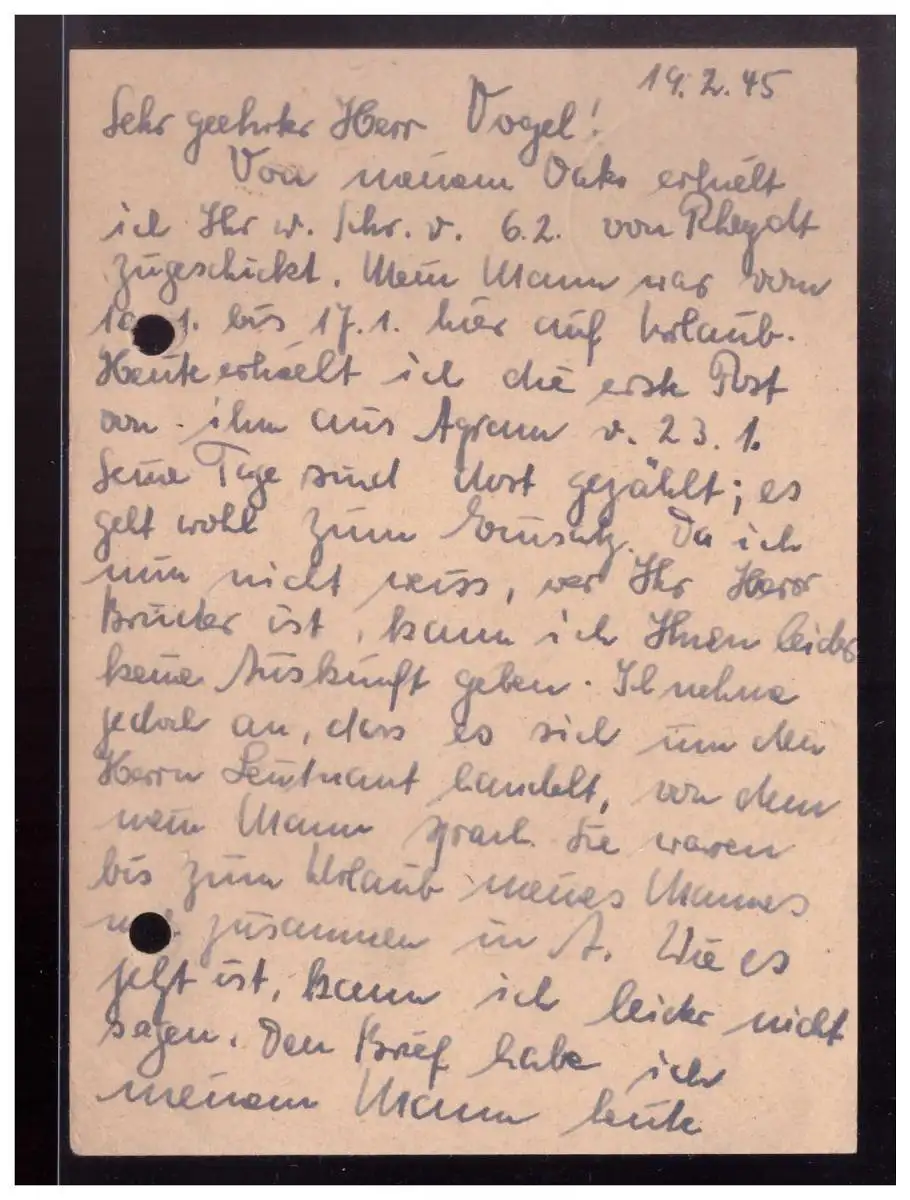 19.2.45
Sehr geehrter Herr Vogel!
Von meinem Onkel erhielt
ich Ihr w. Schr. v. 6.2. von Rheydt
zugeschickt. Mein Mann war vom
1. bis 17.1. hier auf Urlaub.
Heute erhielt ich die erste Post
von ihm aus Agram v. 23.1.
Seine Tage sind dort gezählt; es
geht wohl zum Einsatz. Da ich
nun nicht weiss, wer Ihr Herr
Bruder ist, kann ich Ihnen leider
keine Auskunft geben. Ich nehme
jedoch an, dass es sich um den
Herrn Leutnant handelt, von dem
mein Mann sprach. Sie waren
bis zum Urlaub meines Mannes
zusammen in A. Wie es
jetzt ist, kann ich leider nicht
sagen. Den Brief habe ich
meinem Mann heute